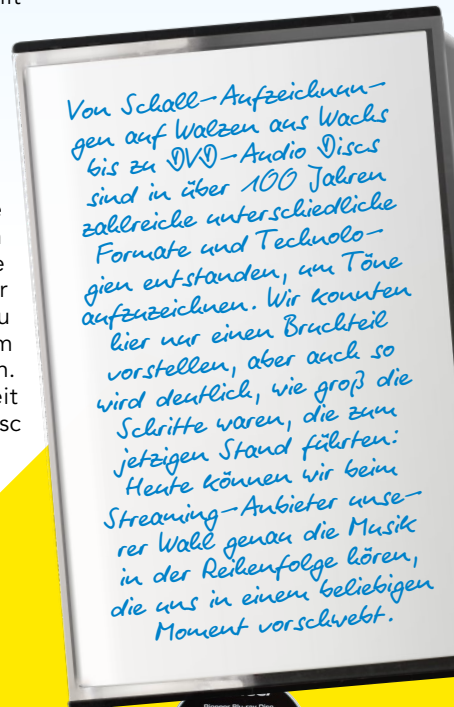 Von Schall-Aufzeichnun-
gen auf Walzen aus Wachs
bis zu DVD-Audio Discs
sind in über 100 Jahren
zahlreiche unterschiedliche
Formate und Technolo-
gien entstanden, um Töne
aufzuzeichnen. Wir konnten
hier nur einen Bruchteil
vorstellen, aber auch so
wird deutlich, wie groß die
Schritte waren, die zum
jetzigen Stand führten:
Heute können wir beim
Streaming-Anbieter unse-
rer Wahl genau die Musik
in der Reihenfolge hören,
die uns in einem beliebigen
Moment vorschwebt.
eit
sc